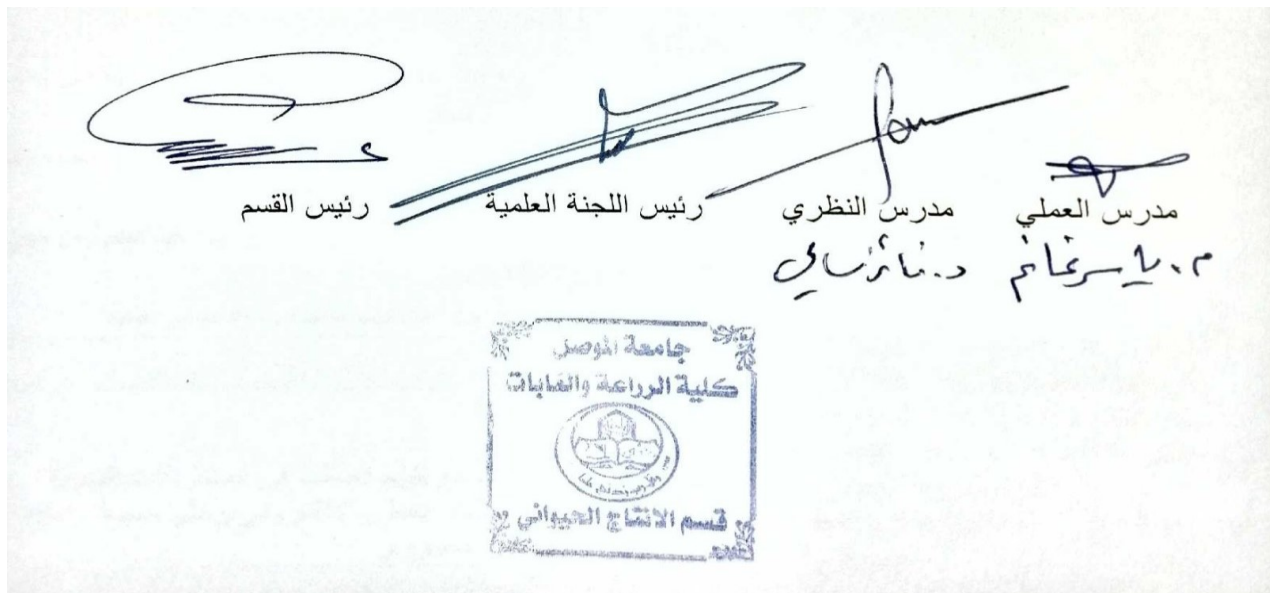 مدرس العملي مدرس النظري رئيس اللجنة العلمية رئيس القسم
م. ياسر غانم د. فائز سالي
جامعة الموصل
كلية الزراعة والغابات
قسم الانتاج الحيواني